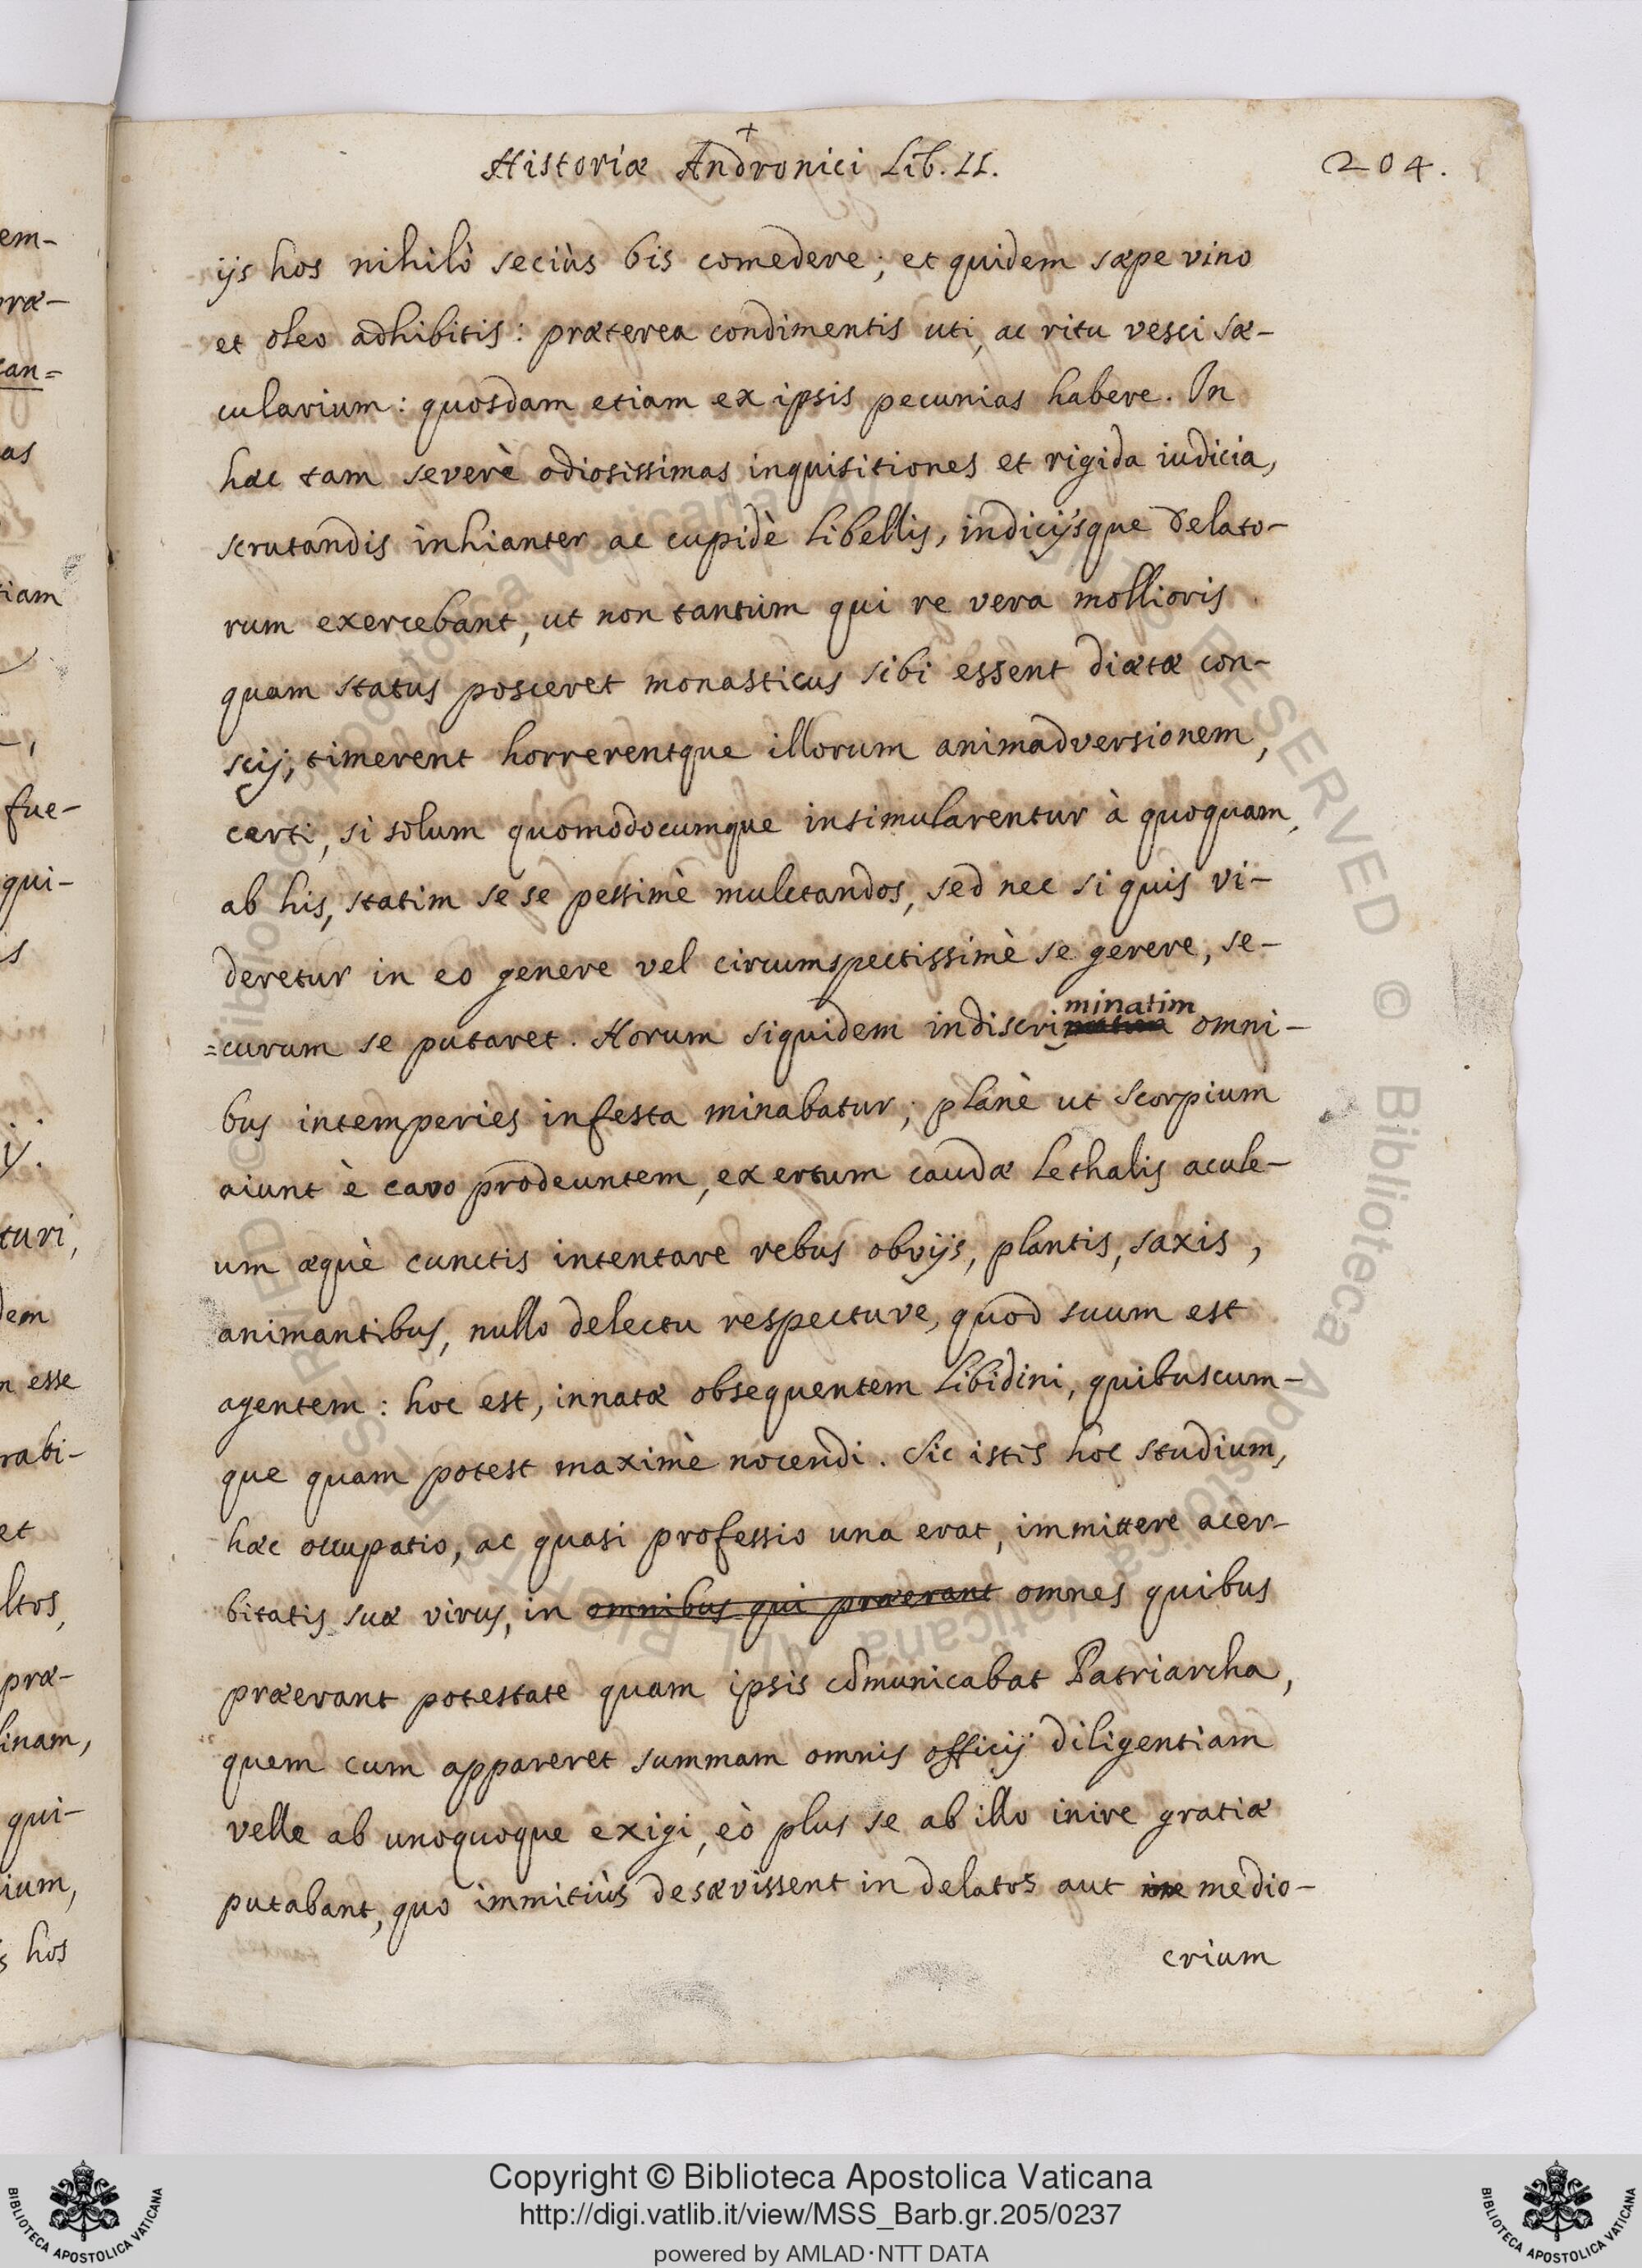 +
Historiæ Andronici Lib. II. 204.
ijs hos nihilò seciùs bis comedere; et quidem sæpe vino
et oleo adhibitis: præterea condimentis uti, ac ritu vesci sæ-
cularium: quosdam etiam ex ipsis pecunias habere. In
hæc tam severè odiosissimas inquisitiones et rigida iudicia,
scrutandis inhianter ac cupidè libellis, indicijsque delato-
rum exercebant, ut non tantùm qui re vera mollioris
quam status posceret monasticus sibi essent diætæ con-
scij, timerent horrerentque illorum animadversionem,
certi, si solum quomodocumque insimularentur à quoquam,
ab his, statim se se pessimè mulctandos, sed nec si quis vi-
deretur in eo genere vel circumspectissimè se gerere, se-
=curum se putaret. Horum siquidem indiscriminatim omni-
bus intemperies infesta minabatur; planè ut scorpium
aiunt è cavo prodeuntem, exertum caudæ lethalis acule-
um æquè cunctis intentare rebus obvijs, plantis, saxis,
animantibus, nullo delectu respectuve, quod suum est
agentem: hoc est, innatæ obsequentem libidini, quibuscum-
que quam potest maximè nocendi. Sic istis hoc studium,
hæc occupatio, ac quasi professio una erat, immittere acer-
bitatis suæ virus, in omnibus qui præerant omnes quibus
præerant potestate quam ipsis cõmunicabat Patriarcha,
quem cum appareret summam omnis officij diligentiam
velle ab unoquoque exigi, eò plus se ab illo inire gratiæ
putabant, quo immitiùs desævissent in delatos aut medio-
crium
em-
præ-
can=
as
tiam
fue-
qui-
is
turi,
dem
n esse
rabi-
et
ltos,
præ-
linam,
qui-
ium,
s hos
Copyright © Biblioteca Apostolica Vaticana
http://digi.vatlib.it/view/MSS_Barb.gr.205/0237
powered by AMLAD·NTT DATA
BIBLIOTECA APOSTOLICA VATICANA
BIBLIOTECA APOSTOLICA VATICANA